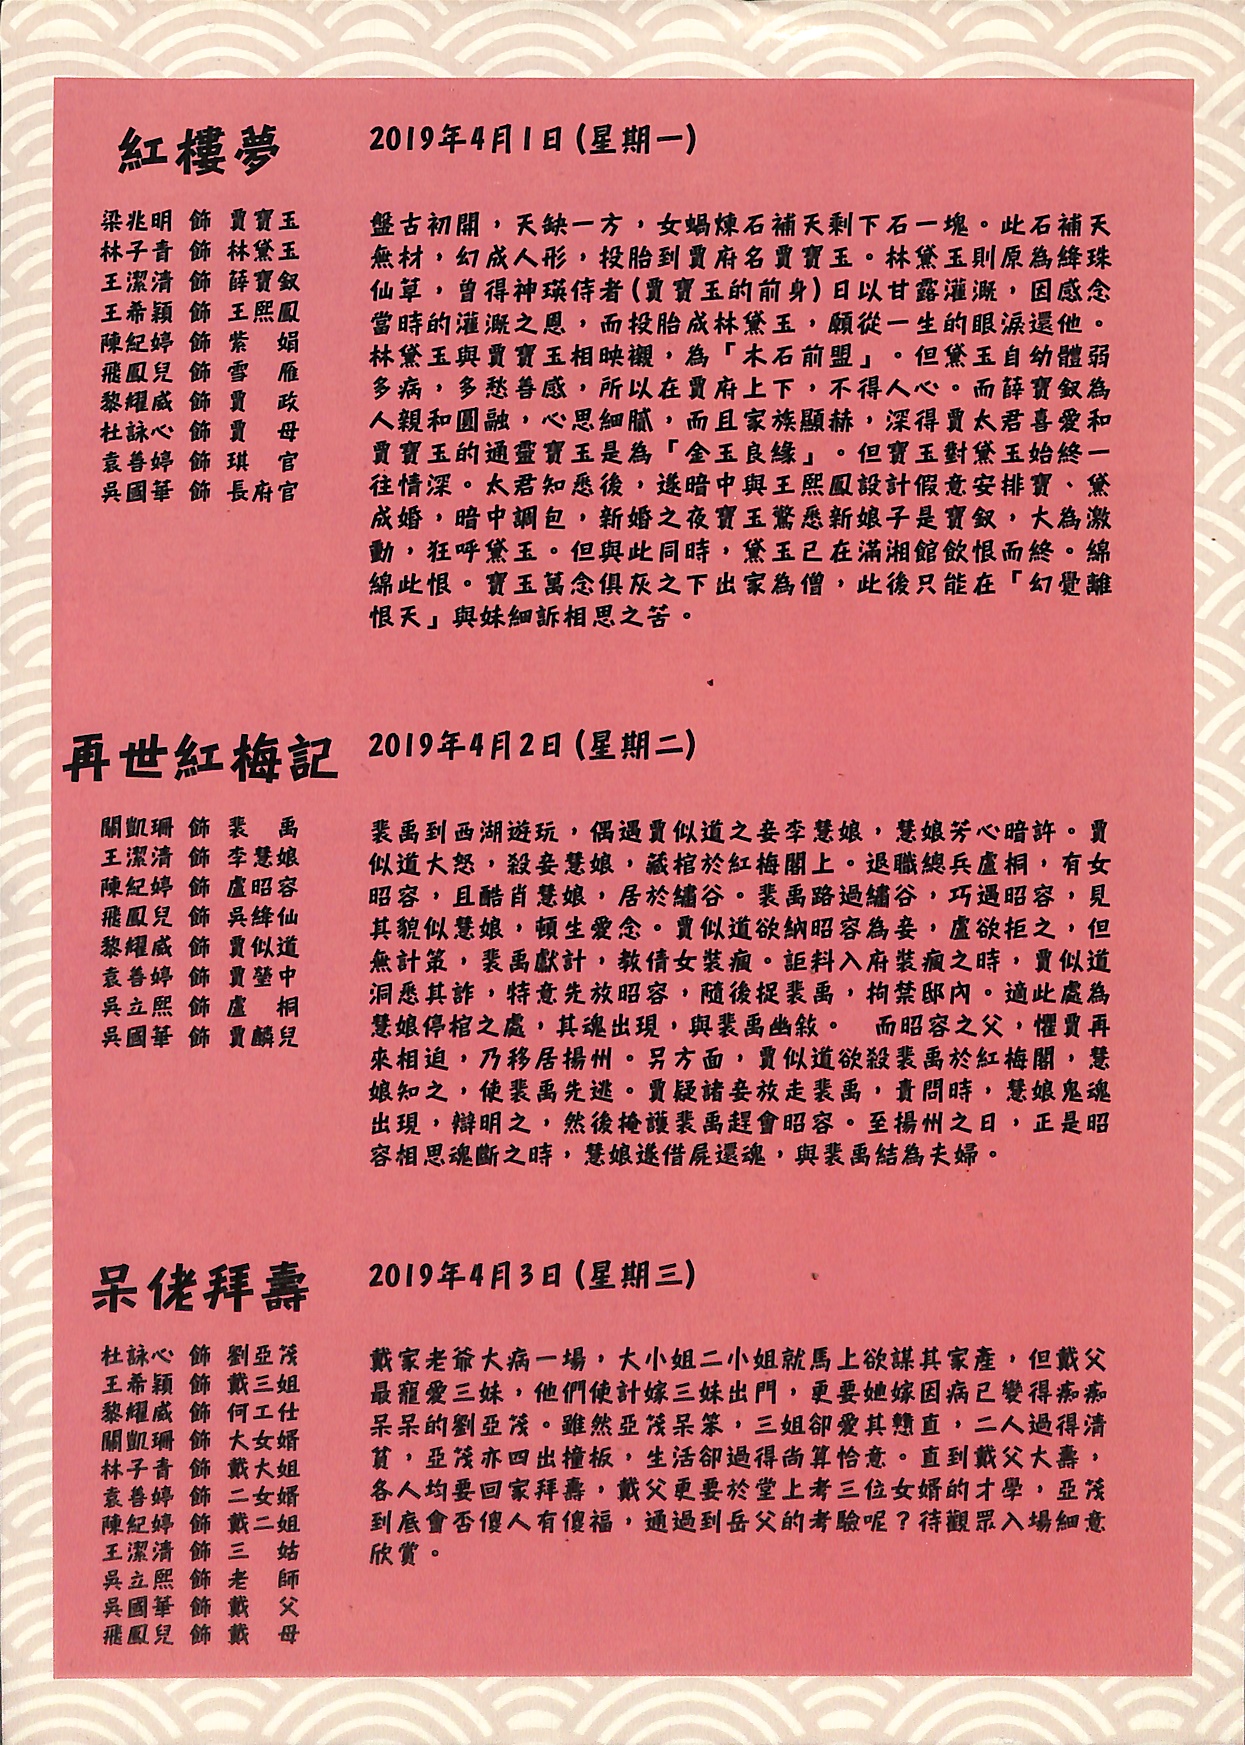 紅樓夢
2019年4月1日(星期一)
梁兆明 飾 賈寶玉
林子青 飾 林黛玉
王潔清 飾 薛寶釵
王希穎 飾 王熙鳳
陳紀婷 飾 紫　娟
飛鳳兒 飾 雪　雁
黎耀威 飾 賈　政
杜詠心 飾 賈　母
袁善婷 飾 琪　官
吳國華 飾 長府官
盤古初開，天缺一方，女蝸煉石補天剩下石一塊。此石補天
無材，幻成人形，投胎到賈府名賈寶玉。林黛玉則原為絳珠
仙草，曾得神瑛侍者(賈寶玉的前身)日以甘露灌溉，因感念
當時的灌溉之恩，而投胎成林黛玉，願從一生的眼淚還他。
林黛玉與賈寶玉相映襯，為「木石前盟」。但黛玉自幼體弱
多病，多愁善感，所以在賈府上下，不得人心。而薛寶釵為
人親和圓融，心思細膩，而且家族顯赫，深得賈太君喜愛和
賈寶玉的通靈寶玉是為「金玉良緣」。但寶玉對黛玉始終一
往情深。太君知悉後，遂暗中與王熙鳳設計假意安排寶、黛
成婚，暗中調包，新婚之夜寶玉驚悉新娘子是寶釵，大為激
動，狂呼黛玉。但與此同時，黛玉已在滿湘館飲恨而終。綿
綿此恨。寶玉萬念俱灰之下出家為僧，此後只能在「幻覺離
恨天」與妹細訴相思之苦。
再世紅梅記
2019年4月2日(星期二)
關凱珊 飾 裴　禹
王潔清 飾 李慧娘
陳紀婷 飾 盧昭容
飛鳳兒 飾 吳絳仙
黎耀威 飾 賈似道
袁善婷 飾 賈瑩中
吳立熙 飾 盧　桐
吳國華 飾 賈麟兒
裴禹到西湖遊玩，偶遇賈似道之妾李慧娘，慧娘芳心暗許。賈
似道大怒，殺妾慧娘，藏棺於紅梅閣上。退職總兵盧桐，有女
昭容，且酷肖慧娘，居於繡谷。裴禹路過繡谷，巧遇昭容，見
其貌似慧娘，頓生愛念。賈似道欲納昭容為妾，盧欲拒之，但
無計策，裴禹獻計，教倩女裝瘋。詎料入府裝瘋之時，賈似道
洞悉其詐，特意先放昭容，隨後捉裴禹，拘禁邸內。適此處為
慧娘停棺之處，其魂出現，與裴禹幽敘。　而昭容之父，懼賈再
來相迫，乃移居揚州。另方面，賈似道欲殺裴禹於紅梅閣，慧
娘知之，使裴禹先逃。賈疑諸妾放走裴禹，責問時，慧娘鬼魂
出現，辯明之，然後掩護裴禹趕會昭容。至揚州之日，正是昭
容相思魂斷之時，慧娘遂借屍還魂，與裴禹結為夫婦。
呆佬拜壽
2019年4月3日(星期三)
杜詠心 飾 劉亞茂
王希穎 飾 戴三姐
黎耀威 飾 何工仕
關凱珊 飾 大女婿
林子青 飾 戴大姐
袁善婷 飾 二女婿
陳紀婷 飾 戴二姐
王潔清 飾 三　姑
吳立熙 飾 老　師
吳國華 飾 戴　父
飛鳳兒 飾 戴　母
戴家老爺大病一場，大小姐二小姐就馬上欲謀其家產，但戴父
最寵愛三妹，他們使計嫁三妹出門，更要她嫁因病已變得痴痴
呆呆的劉亞茂。雖然亞茂呆笨，三姐卻愛其戇直，二人過得清
貧，亞茂亦四出撞板，生活卻過得尚算恰意。直到戴父大壽，
各人均要回家拜壽，戴父更要於堂上考三位女婿的才學，亞茂
到底會否傻人有傻福，通過到岳父的考驗呢？待觀眾入場細意
欣賞。